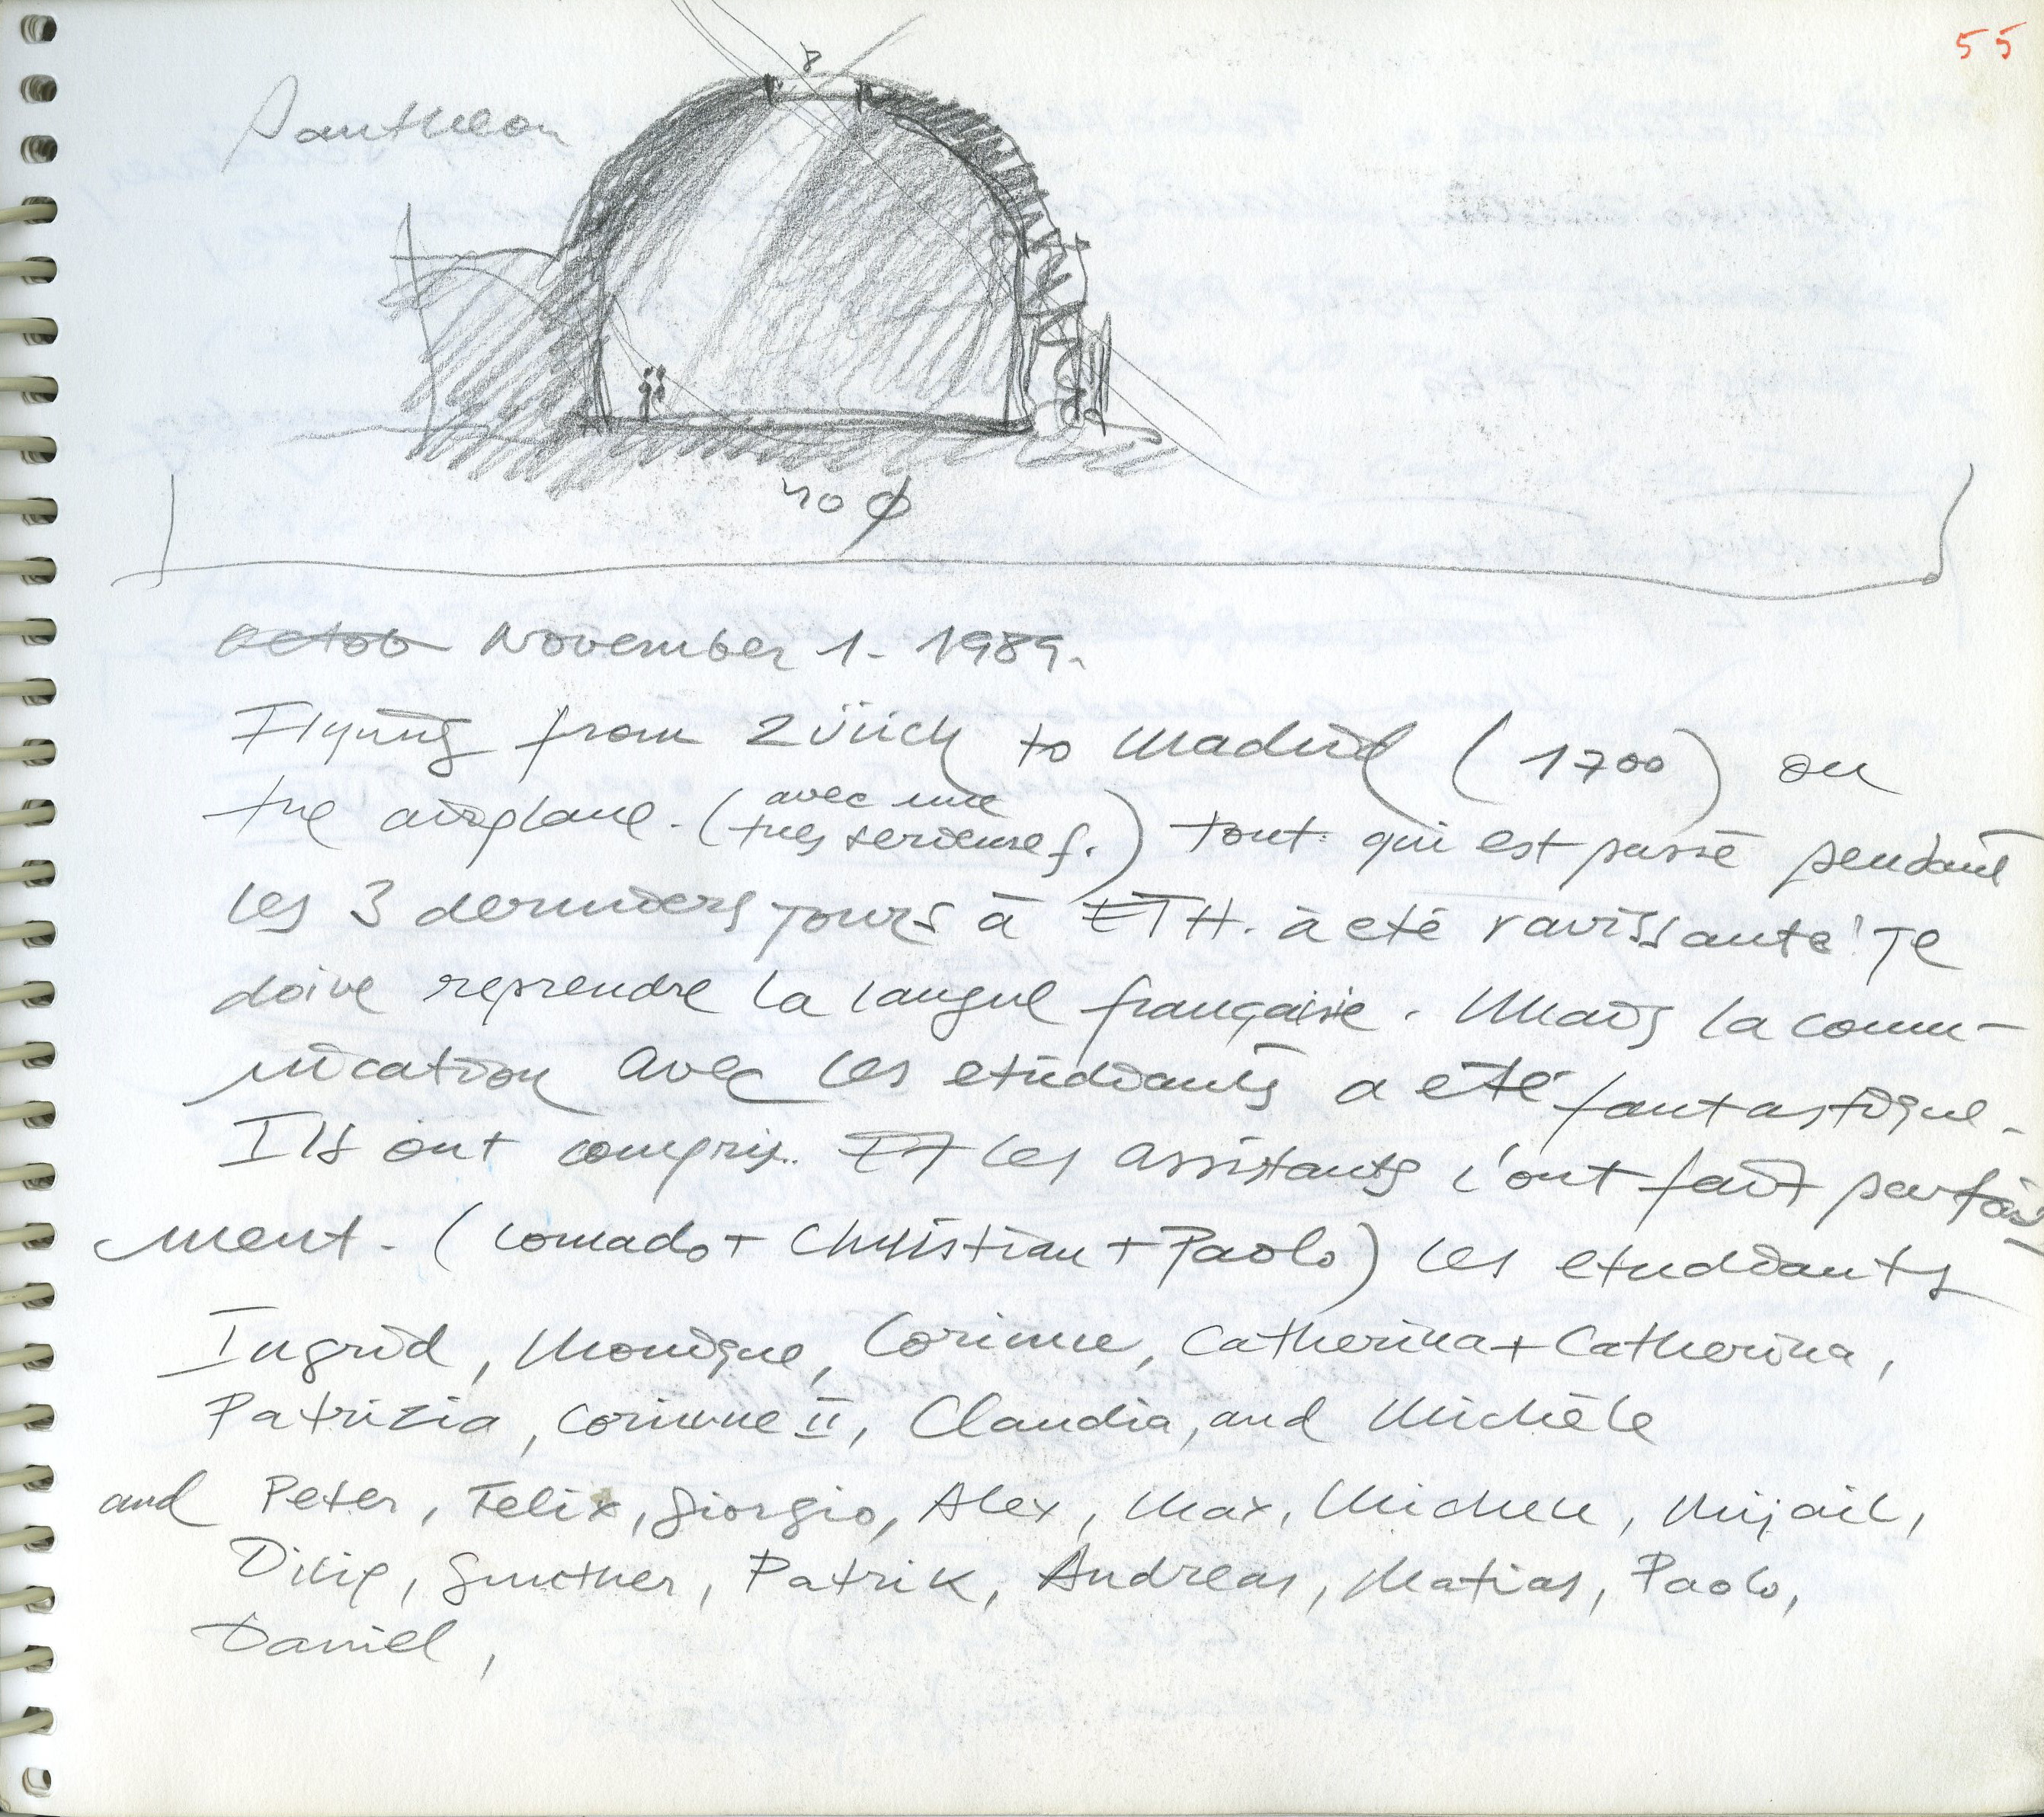 55
8
Pantheon
40 ϕ
Octob November 1. 1989.
Flying from Zürich to Madrid (1700) on
the airplane. (avec une
tres serieuse f.) tout qui est passé pendant
les 3 derniers jours à ETH. à eté ravissante! Je
doive reprendre la langue française. Mais la comu-
nication avec les etudiants a eté fantastique.
Ils ont compris. Et les assistants l'ont fait parfai-
ment. (Conrado + Christian + Paolo) les etudiants
Ingrid, Monique, Corinne, Catherina + Catherina,
Patrizia, Corinne II, Claudia, and Michèle
and Peter, Felix, Giorgio, Alex, Max, Michele, Mijail,
Dilip, Gunther, Patrik, Andreas, Matias, Paolo,
Daniel,